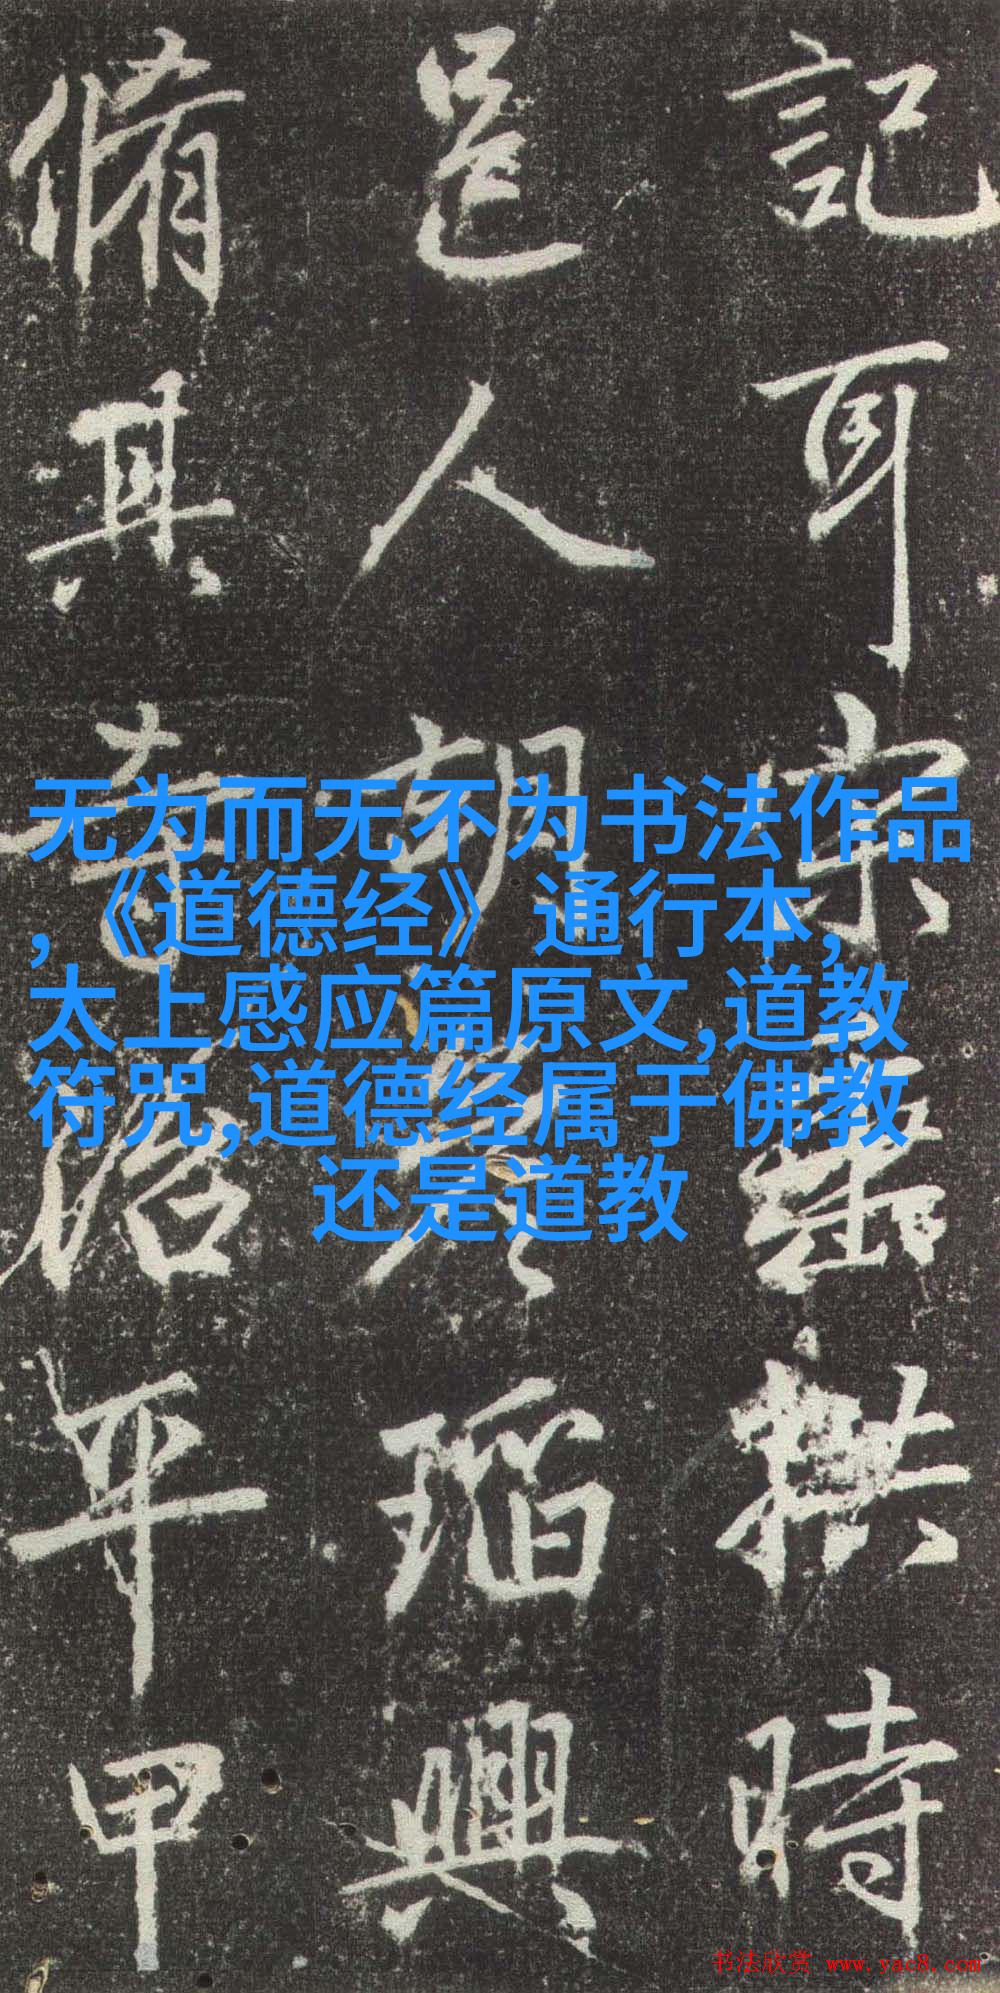 記耳宋垂拱時
邑人胡君瑫興
脩其寺治平甲
无为而无不为 书法作品
,《道德经》通行本,
太上感应篇原文,道教
符咒,道德经属于佛教
还是道教
书法欣赏 www.yac8.com